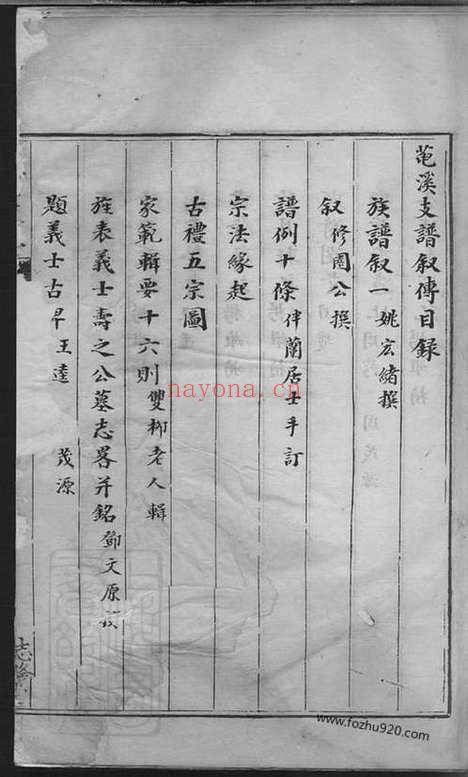 苞溪支譜叙傳目録
族譜叙一姚宏緒撰
叙修園公撰
譜例十條伴蘭居士手訂
宗法緣起
古禮五宗圖
家範輯要十六則雙柳老人輯
旌表義士壽之公墓志畧并銘鄧文原
題義士古早王逵 茂源
nayona.cn
www.fozhu920.com